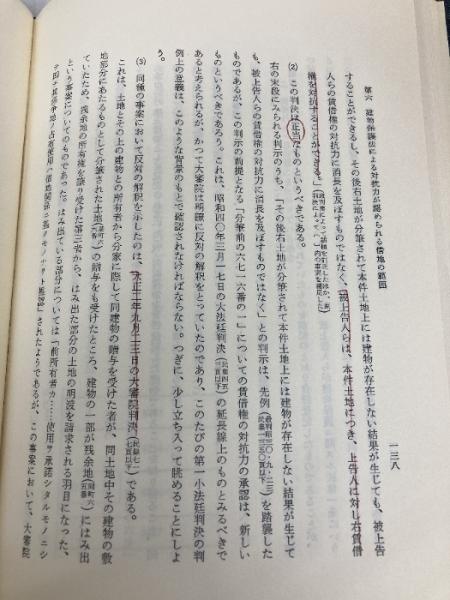 第六 建物保護法による対抗力が認められる借地の範囲
一三八
することができるし、その後右土地が分筆されて本件土地上には建物が存在しない結果が生じても、被上告
人らの賃借権の対抗力に消長を及ぼすものではなく、被上告人らは、本件土地につき、上告人に対し右賃借
権を対抗することができる。」
(2) この判決は正当なものというべきである。
右の末段にみられる判示のうち、「その後右土地が分筆されて本件土地上には建物が存在しない結果が生じて
も、被上告人らの賃借権の対抗力に消長を及ぼすものではなく」との判示は、先例(最判昭三〇・九・二三民集九・一三五〇頁以下)を踏襲した
ものであるが、この判示の前提となる「分筆前の六七一六番の一」についての賃借権の対抗力の承認は、新しい
ものというべきであろう。これは、昭和四〇年三月一七日の大法廷判決の延長線上のものとみるべきで
あると考えられるが、かつて大審院は明瞭に反対の解釈をとっていたのであり、このたびの第一小法廷判決の判
例上の意義は、このような背景のもとで確認されなければならない。つぎに、少し立ち入って眺めることにしよ
う。
(3) 同種の事案において反対の解釈を示したのは、大正二年九月二十三日の大審院判決である。
これは、土地とその上の建物との所有者から分家に際して同建物の贈与を受けた者が、同土地中その建物の敷
地部分にあたるものとして分筆された土地の贈与をも受けたところ、建物の一部が残余地にはみ出
ていたため、残余地の所有権を譲り受けた第三者から、はみ出た部分の土地の明渡を請求される羽目になった、
という事案についてのものであった。はみ出ている部分については「前所有者カ……使用ヲ承諾シタルモノニシ
されたようであるが、この事案において、大審院